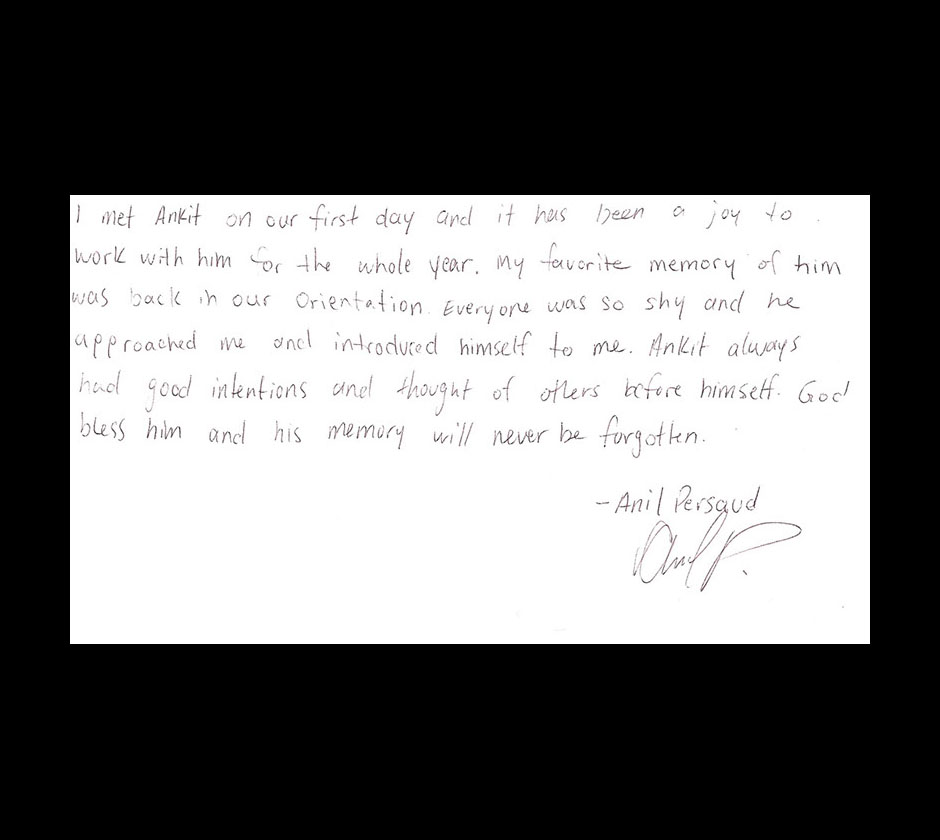 I met Ankit on our first day and it has been a joy to
work with him for the whole year. My favorite memory of him
was back in our Orientation. Everyone was so shy and he
approached me and introduced himself to me. Ankit always
had good intentions and thought of others before himself. God
bless him and his memory will never be forgotten.
-Anil Persaud
Anil P.